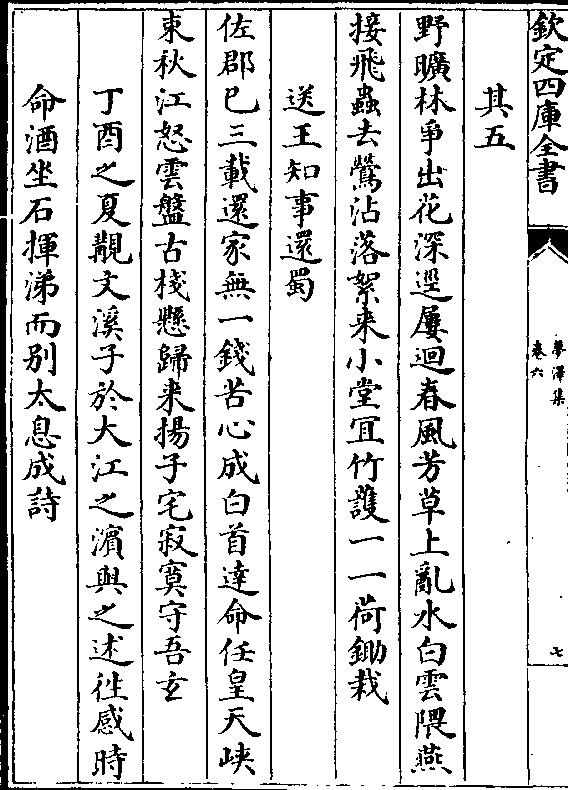 欽定四庫全書
夢澤集
卷六
七
其五
野曠林爭出花深逕屢迴春風芳草上亂水白雲隈燕
接飛蟲去鶯沾落絮来小堂宜竹護一一荷鋤栽
送王知事還蜀
佐郡已三載還家無一錢苦心成白首達命任皇天峽
束秋江怒雲盤古棧懸歸来揚子宅寂寞守吾玄
丁酉之夏覯文溪子於大江之濱與之述徃感時
命酒坐石揮涕而別太息成詩